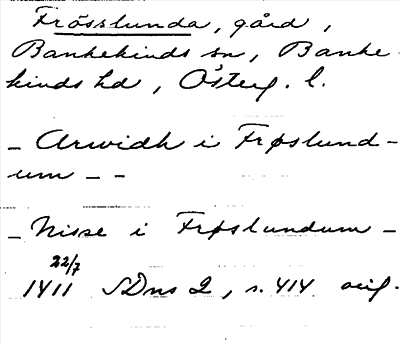 Frösslunda, gård,
Bankekinds sn, Banke-
kinds hd, Österg. l.
_ Arwidh i Frøslund-
um _ _
_ Nisse i Frøslundum _
22/7
1411 SDns 2, s. 414 orig.